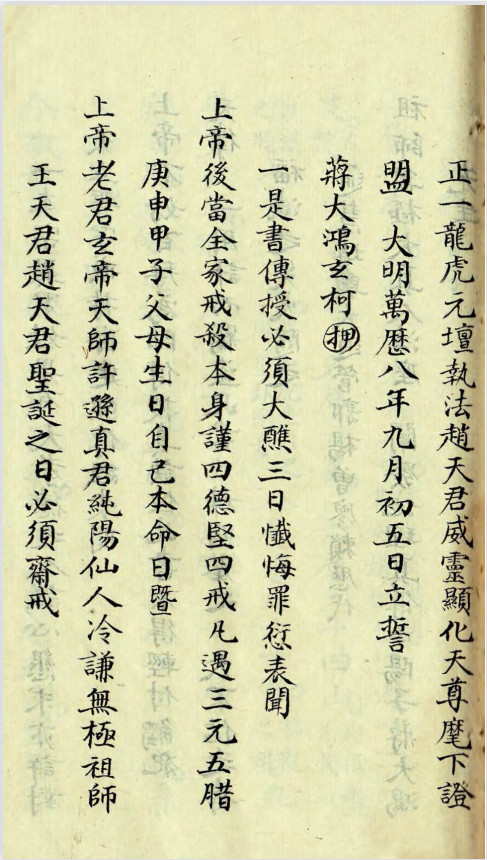 正一龍虎元壇執法趙天君威靈顯化天尊麾下證
盟 大明萬歷八年九月初五日立誓
蔣大鴻玄柯 押
一是書傳授必須大醮三日懺悔罪愆表聞
上帝後當全家戒殺本身謹四德堅四戒凡遇三元五腊
庚申甲子父母生日自己本命日暨
上帝老君玄帝天師許遜真君純陽仙人冷謙無極祖師
王天君趙天君聖誕之日必須齋戒